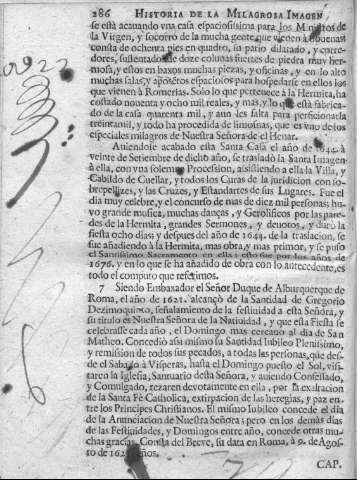 286 HISTORIA DE LA MILAGROSA IMAGEN
se està acavando vna casa espaciosissima para los Ministros de
la Virgen, y socorro de la mucha gente que vienen à Nouenas:
consta de ochenta pies en quadro, su patio dilatado, y corre-
dores, sustentado de doze colunas fuertes de piedra muy her-
mosa, y estos en baxos muchas piezas, y oficinas, y en lo alto
muchas salas, y aposentos espaciosos para hospedarse en ellos los
que vienen à Romerias. Solo lo que pertenece à la Hermita, ha
costado nouenta y ocho mil reales, y mas, y lo que està fabrica-
do de la casa quarenta mil, y aun les falta para perficionarla
treinta mil, y todo ha procedido de limosnas, que es vno de los
especiales milagros de Nuestra Señora de el Henar.
Auiendose acabado esta Santa Casa el año de 1644. à
veinte de Setiembre de dicho año, se trasladò la Santa Imagen
à ella, con vna solemne Procession, assistiendo a ella la Villa, y
Cabildo de Cuellar, y todos los Curas de la jurisdicion con so-
brepellizes, y las Cruzes, y Estandartes de sus Lugares. Fue el
dia muy celebre, y el concurso de mas de diez mil personas: hu-
vo grande musica, muchas danças, y Geroglificos por las pare-
des de la Hermita, grandes Sermones, y deuotos, y durò la
fiesta ocho dias, y despues del año de 1644. de la traslacion, se
fue añadiendo à la Hermita, mas obra, y mas primor, y se puso
el Santissimo Sacramento en ella: esto fue por los años de
1676. y en lo que se ha añadido de obra con lo antecedente, es
todo el computo que referimos.
7 Siendo Embaxador el Señor Duque de Alburquerque de
Roma, el año de 1621. alcançò de la Santidad de Gregorio
Dezimoquinto, señalamiento de la festiuidad a esta Señora, y
su titulo es Nuestra Señora de la Natiuidad, y que esta Fiesta se
celebrasse cada año, el Domingo mas cercano al dia de San
Matheo. Concediò assi mismo su Santidad Iubileo Plenissimo,
y remission de todos sus pecados, a todas las personas, que des-
de el Sabado à Visperas, hasta el Domingo puesto el Sol, visi-
taren la Iglesia, Santuario desta Señora, y auiendo Confessado,
y Comulgado, rezaren devotamente en ella, por la exaltacion
de la Santa Fè Catholica, extirpacion de las heregias, y paz en-
tre los Principes Christianos. El mismo Iubileo concede el dia
de la Anunciacion de Nuestra Señora; pero en los demàs dias
de las Festiuidades, y Domingos entre año, concede otras mu-
chas gracias. Consta del Breve, su data en Roma, à 9. de Agos-
to de 162 años.
CAP.